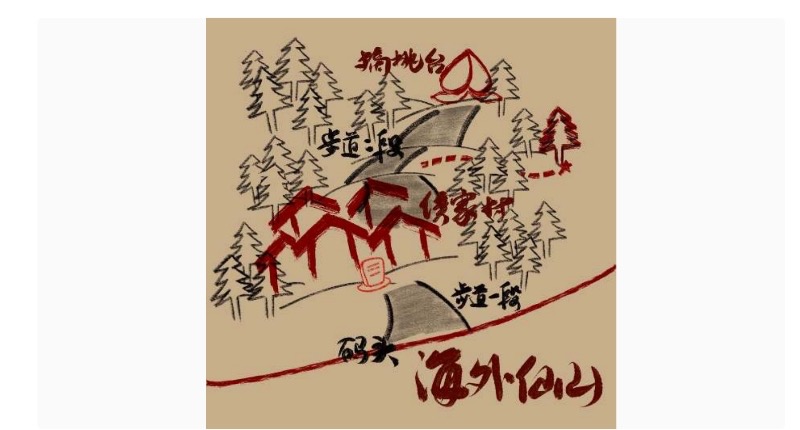 摘桃台
步道二段
侯家村
步道一段
码头
海外仙山